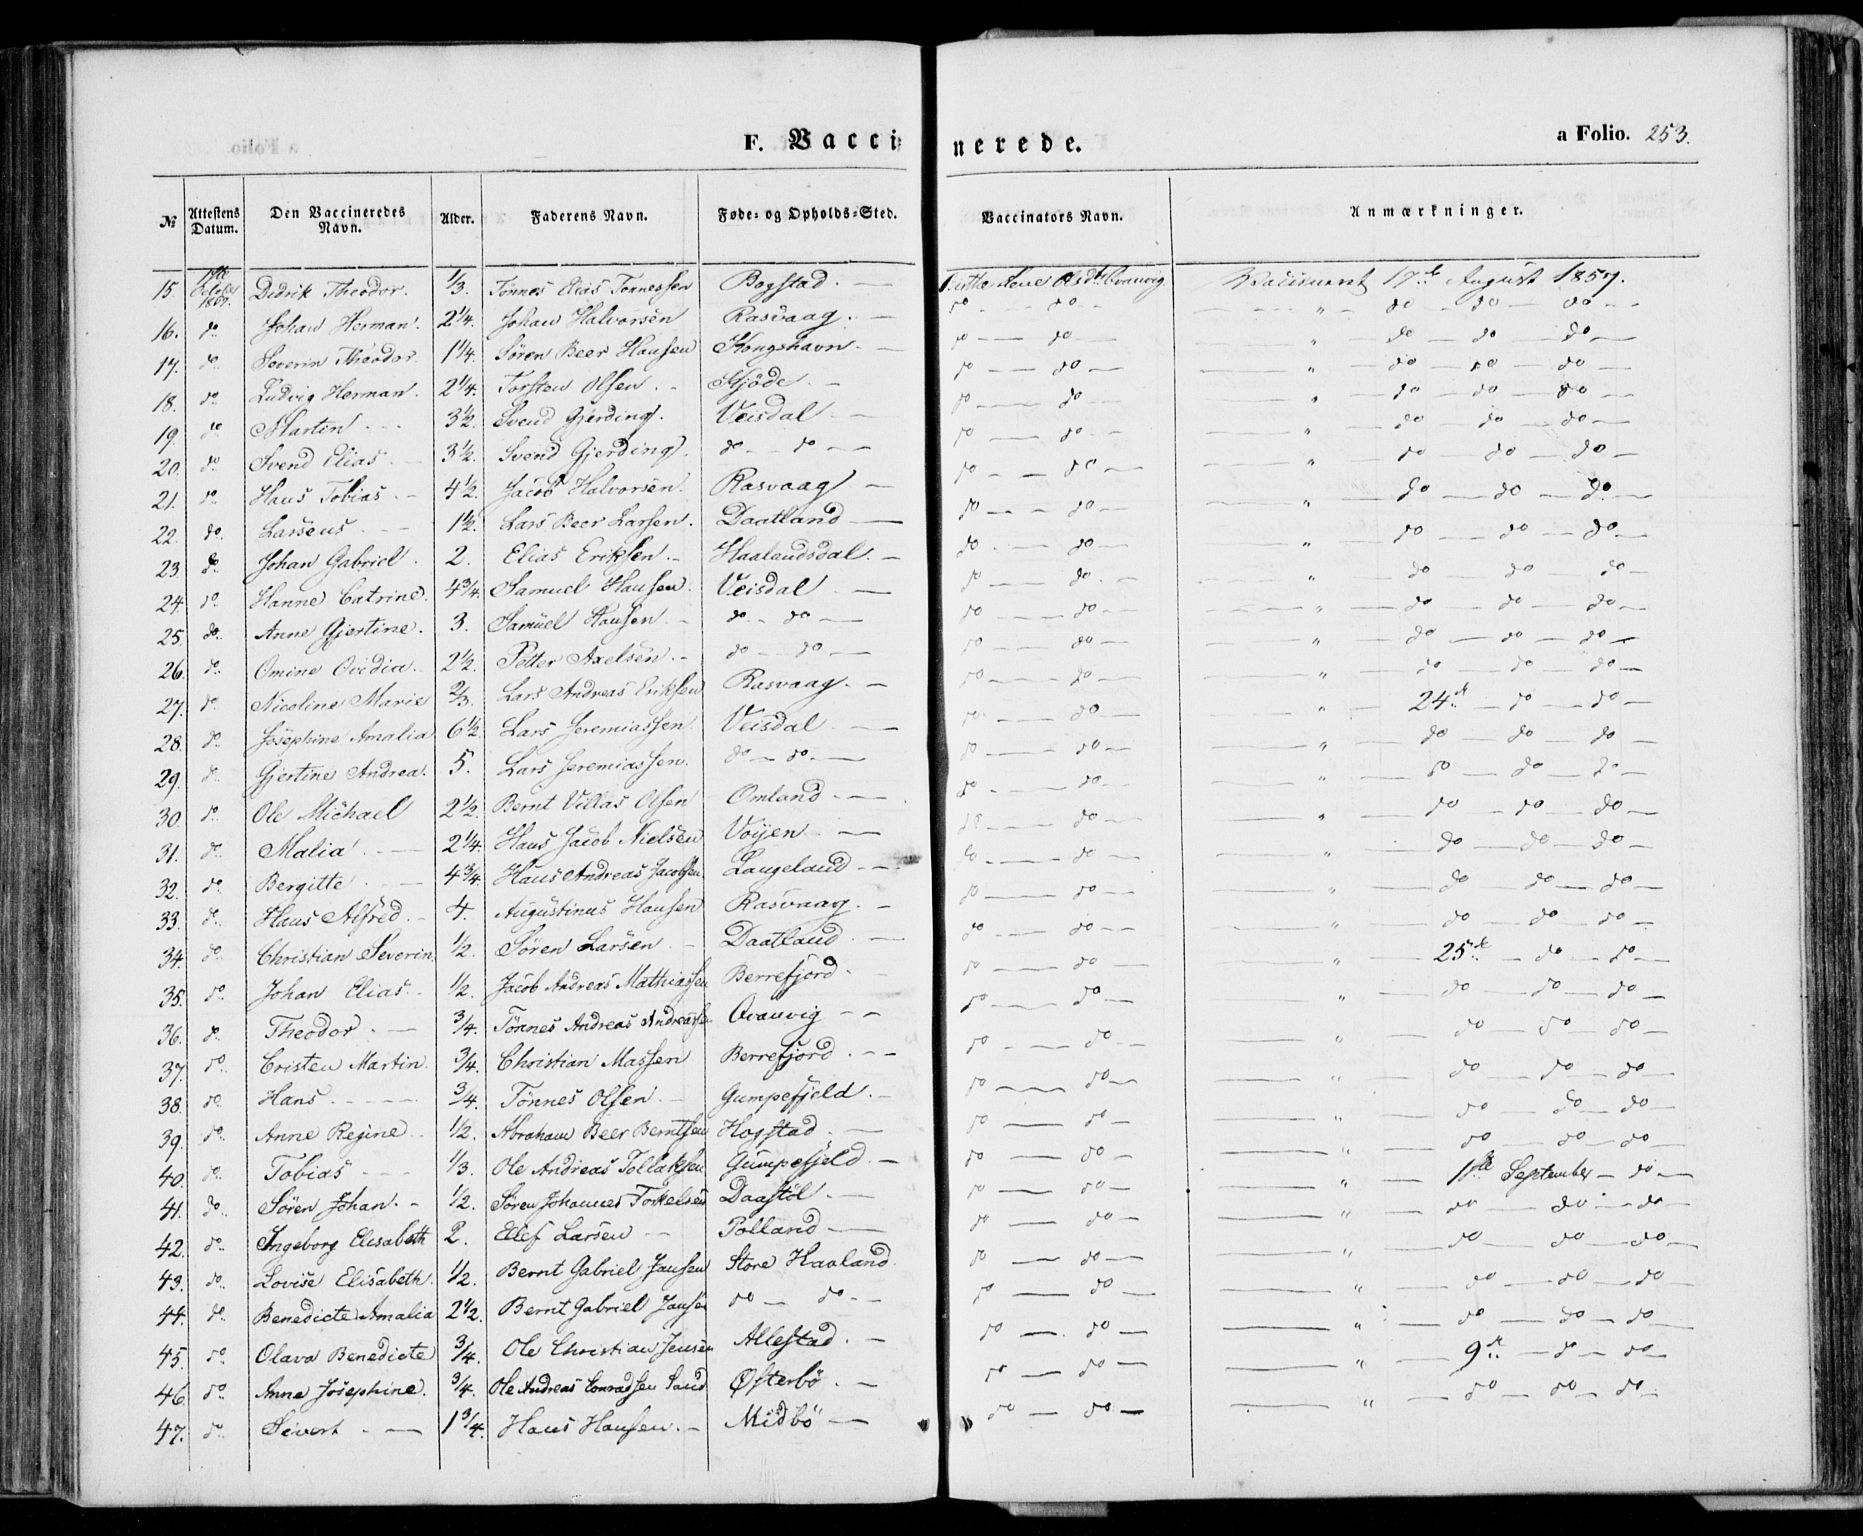 F. Vaccinerede.
a Folio. 253.
№ Attestens Datum. Den Vaccineredes Navn. Alder. Faderens Navn. Føde- og Opholds-Sted. Vaccinators Navn. Anmærkninger.
15. 1857. Didrik Theodor. 1/3. Tönnes Elias Tönnessen Bogstad. — 17de August 1857.
16. do Johan Herman. 2 1/4. Johan Halvorsen Rasvaag. — do — do — " do do — do —
17. do Severin Theodor. 1 1/4. Sören Beer Hansen Kongshavn — do — do — " do — do — do —
18. do Ludvig Herman. 2 1/4. Torsten Olsen. - Stjöde. — do — do — " — do — do — do —
19. do Martin — 3 1/2. Svend Gjerding. Veisdal — do — do — " — do — do — do —
20. do Svend Elias. 3 1/2. Svend Gjerding. do — do — do — do — " — do — do — do —
21. do Hans Tobias. - 4 1/2. Jacob Halvorsen. Rasvaag — do — do — " — do — do — do —
22. do Larseus. 1 1/2. Lars Beer Larsen. Daatland — do — do — " — do — do — do —
23. do Johan Gabriel. 2. Elias Eriksen. - Haalandsdal. — do — do — " — do — do — do —
24. do Hanne Catrine. 4 3/4. Samuel Hansen. Veisdal — do — do — " do do do —
25. do Anne Gjertine. 3. Samuel Hansen. - do — do — do — do — " — do — do — do —
26. do Omine Ovidia. 2 1/2. Petter Axelsen. - do — do — do — do — " — do — do — do —
27. do Nicoline Marie 2/3. Lars Andreas Eriksen Rasvaag. — do — do — " — do — do — do —
28. do Josephine Amalia 6 1/2. Lars Jeremiassen Veisdal — do — do — " — 24de — do — do —
29. do Gjertine Andrea. 5. Lars Jeremiassen. do — do — do — do — " — do — do — do —
30. do Ole Michael 2 1/2. Bernt Villas Olsen Omland — do — do — " — do — do — do —
31. do Malia — 2 1/4. Hans Jacob Nielsen Voijen — do — do — " — do — do — do —
32. do Bergitte — 4 3/4. Hans Andreas Jacobsen Langeland — do — do — " — do — do — do —
33. do Hans Alfred. - 4. Augustinus Hansen Rasvaag. - do — do — " — do — do — do —
34. do Christian Severin. 1/2. Sören Larsen — Daatland. — do — do — " — do — do — do —
35. do Johan Elias. 1/2. Jacob Andreas Mathiassen Berrefjord. - do — do — " — 25de — do — do —
36. do Theodor. — 3/4. Tönnes Andreas Andreassen Qvanvig — do — do — " — do — do — do —
37. do Cristen Martin. 3/4. Christian Massen Berrefjord. — do — do — " — do — do — do —
38. do Hans — 3/4. Tönnes Olsen. Gumpefjeld. - do — do — " — do — do — do —
39. do Anne Regine. 1/2. Abraham Beer Berntsen Hogstad. — do — do — " — do — do — do —
40. do Tobias — 1/3. Ole Andreas Tollaksen Gumpefjeld. — do — do — " — do — do — do —
41. do Sören Johan. - 1/2. Sören Johannes Torkelsen Daastöl — do — do — " — 1ste September — do —
42. do Ingeborg Elisabeth 2. Ellef Larsen — Polland — do — do — " — do — do — do —
43. do Lovise Elisabeth. 1/2. Bernt Gabriel Jansen Store Haaland do — do — " — do — do — do —
44. do Benedicte Amalia 2 1/2. Bernt Gabriel Jansen do — do — do — do — " — do — do — do —
45. do Olava Benedicte 3/4. Ole Christian Jensen Allestad. — do — do — " — do — do — do —
46. do Anne Josephine. 3/4. Ole Andreas Conradsen Sand Østerbö. — do — do — " — 9de — do — do —
47. do Sivert — 1 3/4. Hans Hansen. - Midbö — do — do — " — do — do — do —